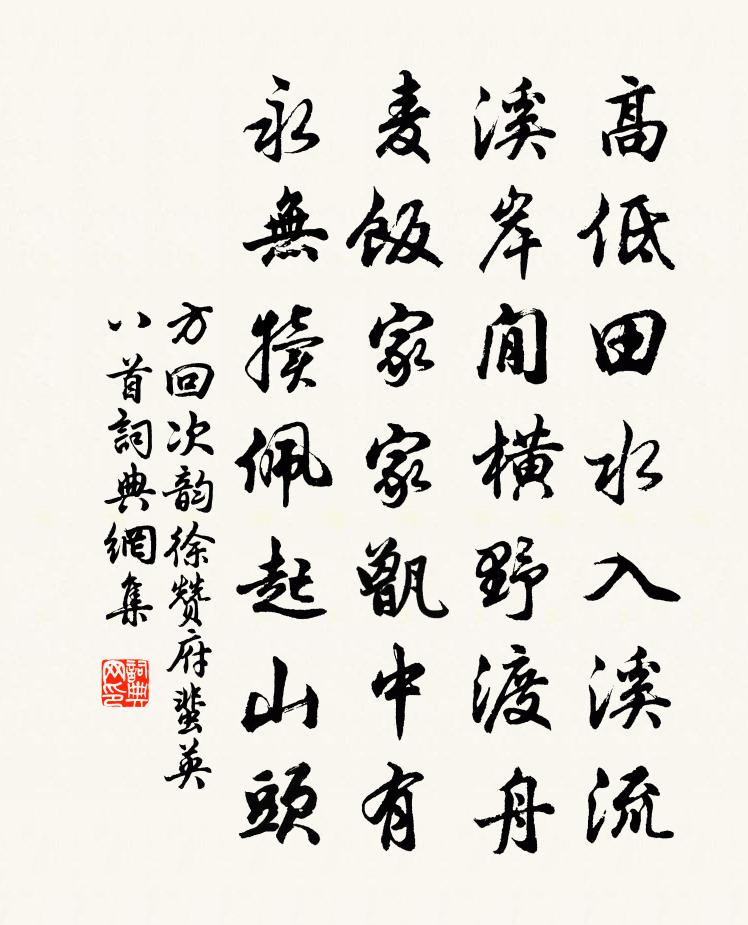 高低田水入溪流
溪岸閒橫野渡舟
麦飯家家甑中有
永無犢佩起山頭
方回次韵徐赞府蜚英
八首詞典網集
詞典网印